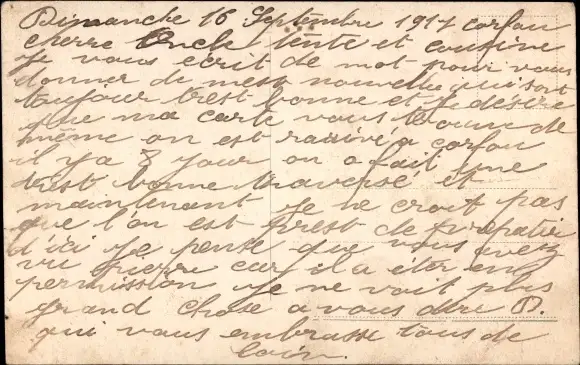 Dimanche 16 Septembre 1917 corfou
cherre Oncle tente et cousine
Je vous ecrit de mot pour vous
donner de mest nouvelle qui sont
toujour trest bonne et je désire
que ma carte vous trouve de
même on est raивé a corfou
il y a 8 jour on a fait une
trest bonne traversé et
maintenant je ne croit pas
que l'on est prest de
d'ici je pense que vous avez
vu pierre car il a éter en
permission je ne voit plus
grand chose a vous dire
qui vous embrasse tous de
loin.